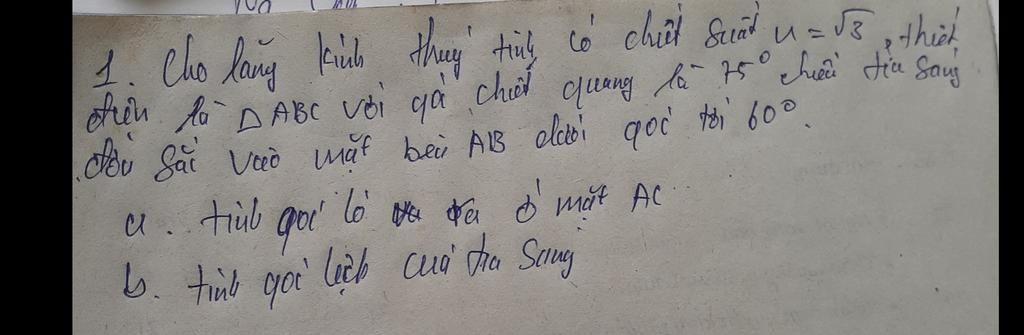 1. Cho lăng kính thuỷ tinh có chiết suất n = √3, thiết
diện là Δ ABC với góc chiết quang là 75° chiếu tia sáng
đơn sắc vào mặt bên AB dưới góc tới 60°.
a. tính góc ló ra ở mặt AC
b. tính góc lệch của tia sáng